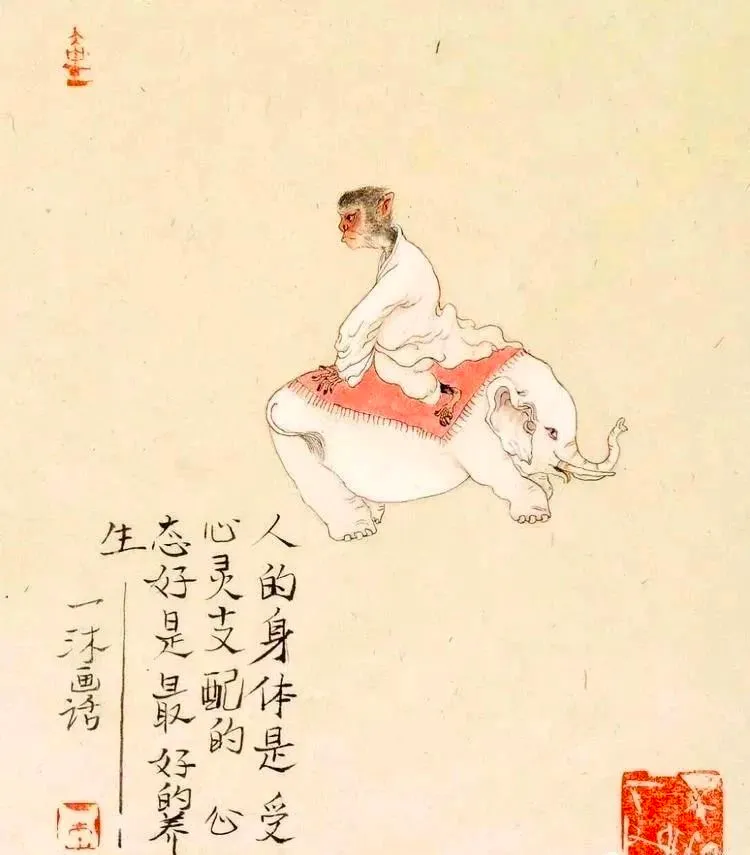 人的身体是 受
心灵支配的 心
态好是最好的养
生
一沐画话